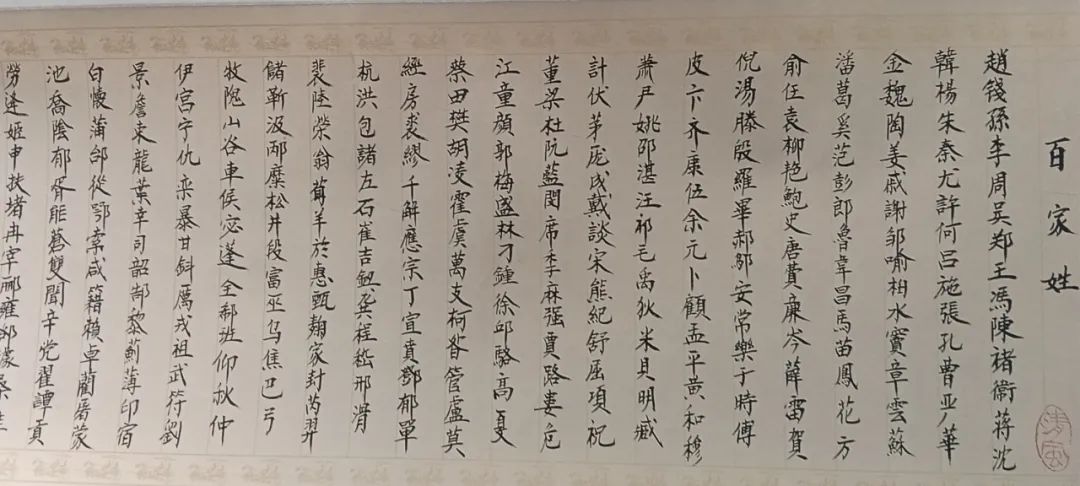 百家姓
趙錢孫李周吴郑王馮陳褚衛蒋沈
韓楊朱秦尤許何吕施張孔曹严華
金魏陶姜戚謝邹喻柏水竇章雲蘇
潘葛奚范彭郎魯韋昌馬苗鳳花方
俞任袁柳艳鮑史唐費廉岑薛雷賀
倪湯滕殷羅畢郝邬安常樂于時傅
皮卞齐康伍余元卜顧孟平黄和穆
萧尹姚邵湛汪祁毛禹狄米貝明臧
計伏茅庞成戴談宋熊紀舒屈項祝
董梁杜阮藍閔席季麻强賈路婁危
江童顔郭梅盛林刁鍾徐邱駱高夏
蔡田樊胡凌霍虞萬支柯昝管盧莫
經房裘繆干解應宗丁宣賁鄧郁單
杭洪包諸左石崔吉鈕龚程嵇邢滑
裴陸榮翁荀羊於惠甄麹家封芮羿
儲靳汲邴糜松井段富巫乌焦巴弓
牧隗山谷車侯宓蓬全郗班仰秋仲
伊宫宁仇栾暴甘斜厲戎祖武符劉
景詹束龍葉幸司韶郜黎薊薄印宿
白懷蒲邰從鄂索咸籍賴卓藺屠蒙
池喬陰郁胥能蒼雙聞辛党翟譚貢
勞逄姬申扶堵冉宰郦雍